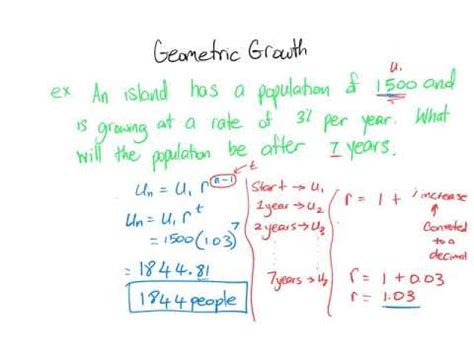 Geometric Growth
u₁
ex An island has a population of 1500 and
is growing at a rate of 3% per year. What
will the population be after 7 years.
t
uₙ = u₁ r^(n-1)
uₙ = u₁ r^t
= 1500(1.03)^7
= 1844.81
1844 people
Start → u₁
1 year → u₂
2 years → u₃
7 years → u₈
r = 1 + % increase
Converted
to a
decimal
r = 1 + 0.03
r = 1.03